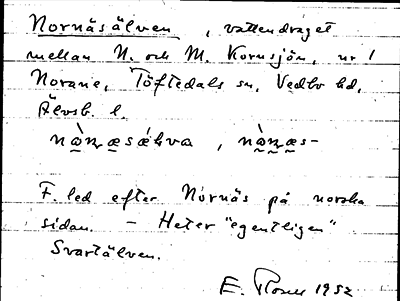 Nornäsälven, vattendraget
mellan N. och M. Kornsjön, nr 1
Norane, Töftedals sn, Vedbo hd,
Älvsb. l.
F. led efter Nornäs på norska
sidan. – Heter "egentligen"
Svartälven.
E. 1952